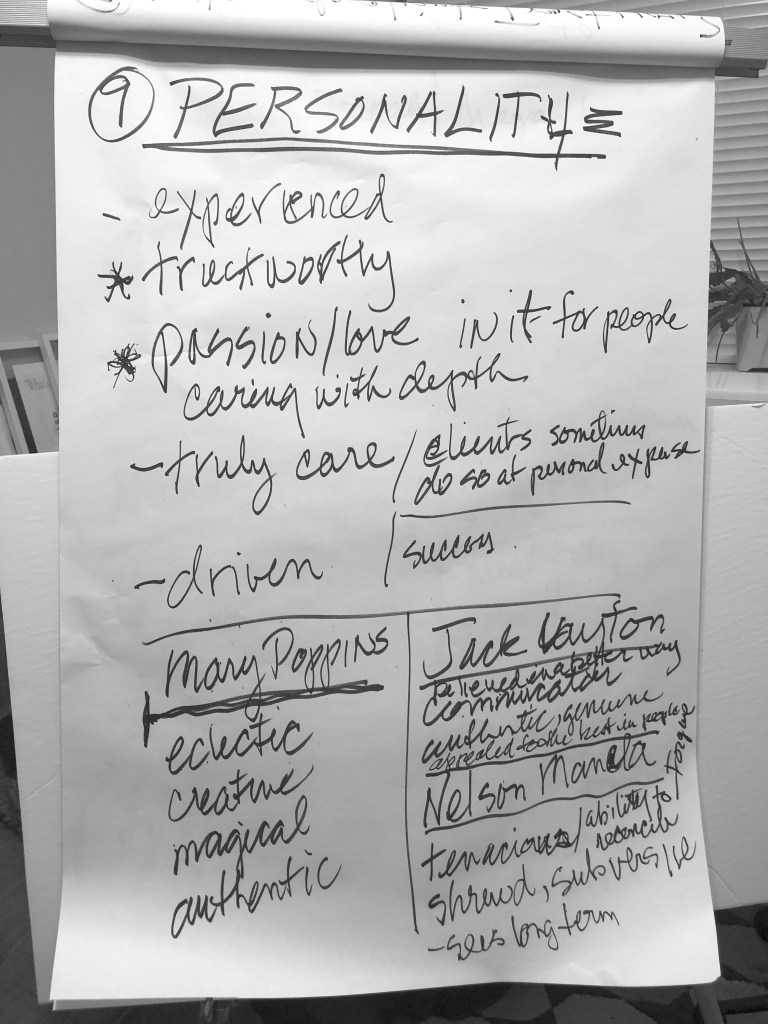 9 PERSONALITY
- experienced
* trustworthy
* PASSION/love in it for people
caring with depth
- truly care / clients sometimes
do so at personal expense
- driven / success
Mary Poppins
eclectic
creative
magical
authentic
Jack Layton
believed in a better way
communicator
authentic, genuine
appealed to the best in people
Nelson Mandela
tenacious / ability to
reconcile / forgive
shrewd, subversive
- sees long term